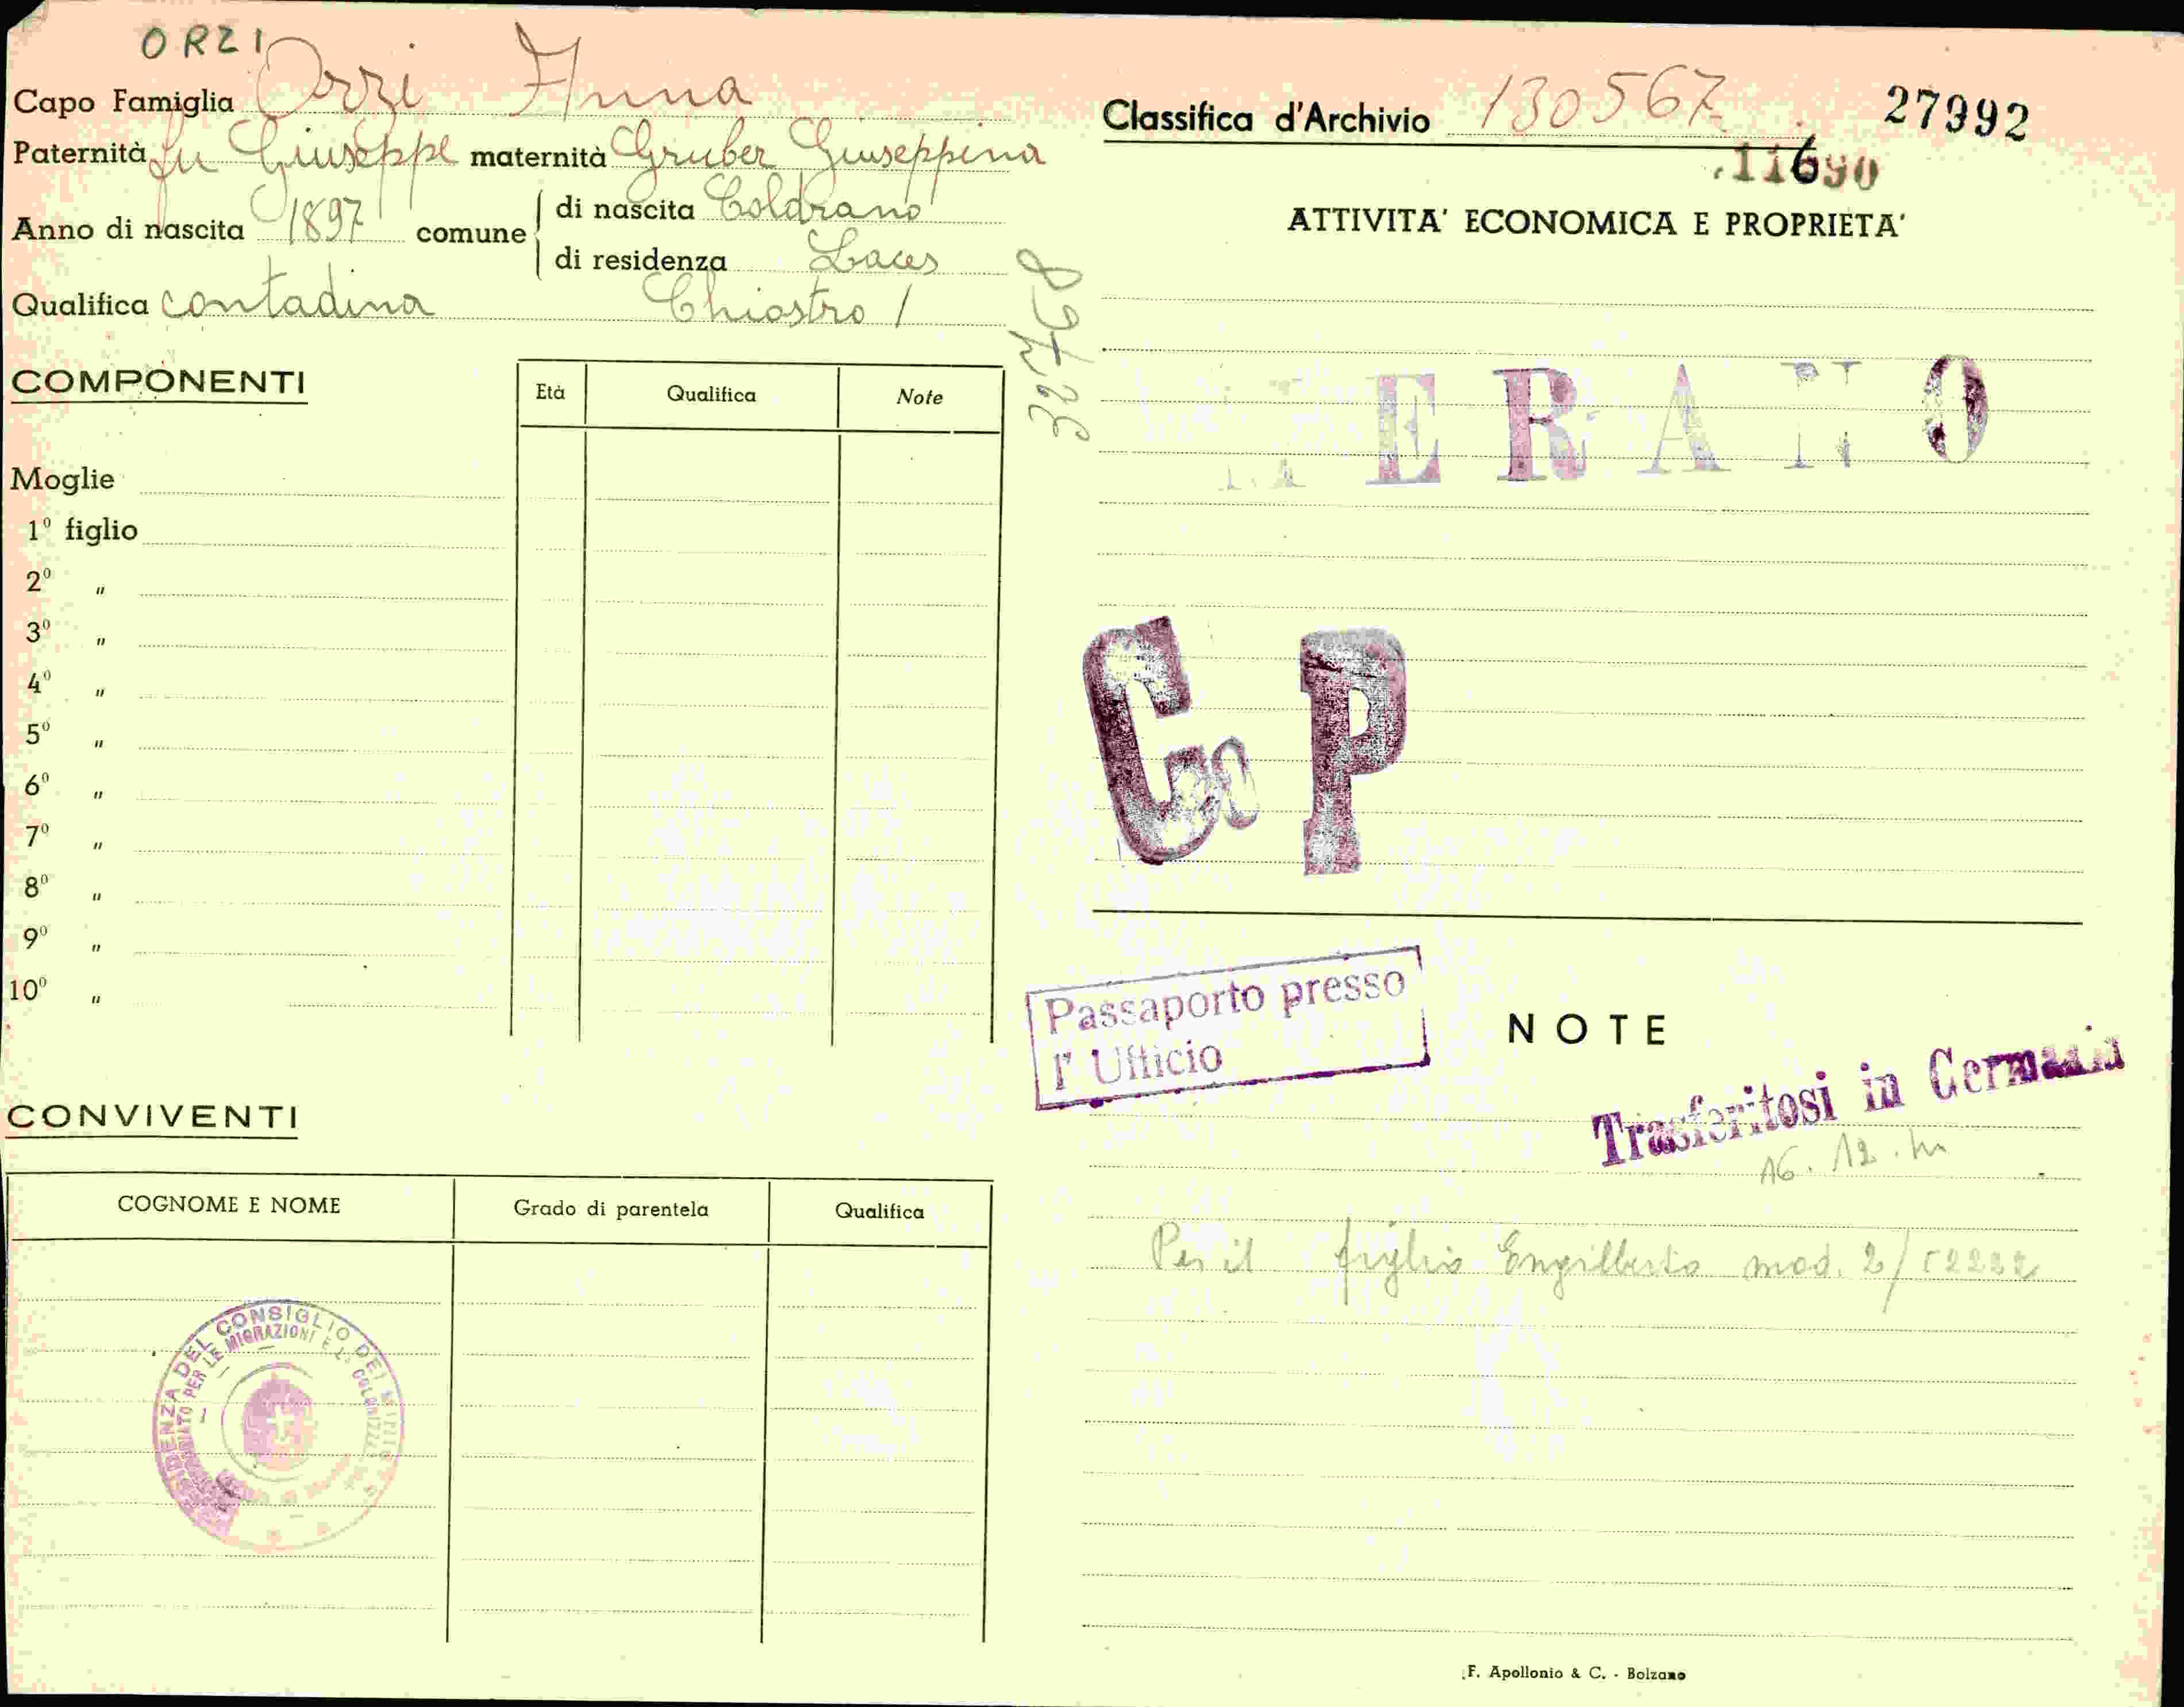 ORZI
Capo Famiglia Orzi Anna
Paternità fu Giuseppe maternità Gruber Giuseppina
Anno di nascita 1897 comune di nascita Coldrano
di residenza Laces
Qualifica contadina Chiostro 1
COMPONENTI
Età Qualifica Note
Moglie
1º figlio
2º "
3º "
4º "
5º "
6º "
7º "
8º "
9º "
10º "
CONVIVENTI
COGNOME E NOME Grado di parentela Qualifica
Classifica d'Archivio 130567 27992
11690
ATTIVITA' ECONOMICA E PROPRIETA'
MERANO
C P
Passaporto presso
l' Ufficio
NOTE
Trasferitosi in Germania
16. 12.
Per il figlio Engilberto mod. 2/
F. Apollonio & C. - Bolzano